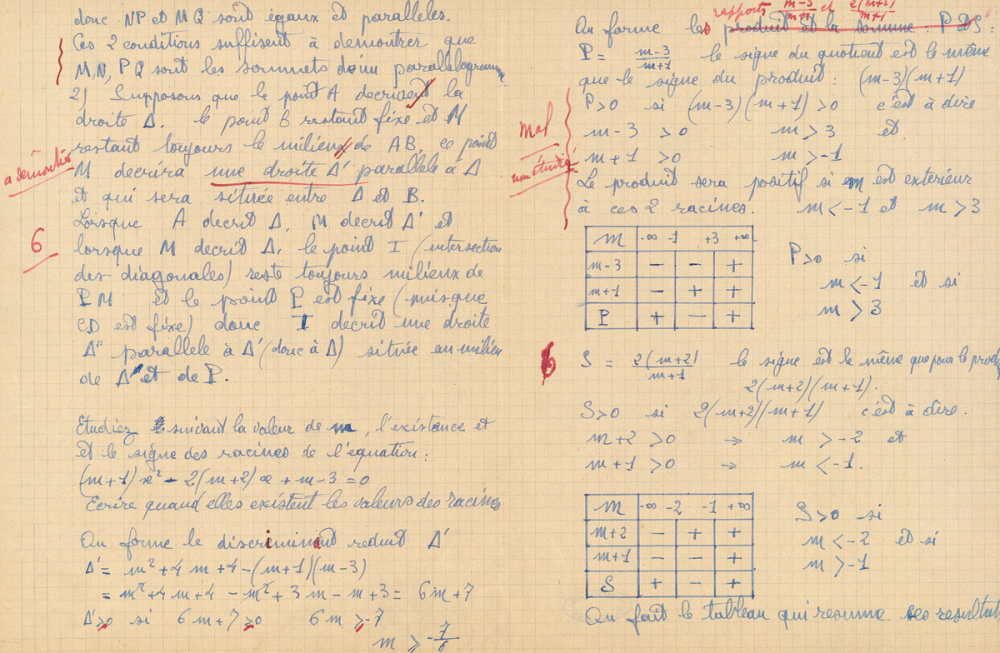 donc NP et MQ sont égaux et paralleles.
Ces 2 conditions suffisent à demontrer que
M,N, P,Q sont les sommets d'un parallélogramme
2) Supposons que le point A decrivent la
droite Δ. le point B restant fixe et M
restant toujours le milieux de AB, ce point
a démontrer
M decrira une droite Δ' parallele à Δ
Et qui sera située entre Δ et B.
Lorsque A decrit Δ, M decrit Δ' et
6
lorsque M decrit Δ, le point I (intersection
des diagonales) reste toujours milieux de
PM et le point P est fixe (puisque
CD est fixe) donc I decrit une droite
Δ'' parallele à Δ' (donc à Δ) située au milieu
de Δ' et de P.
Etudiez suivant la valeur de m, l'existence et
et le signe des racines de l'équation:
(m+1)x² - 2(m+2)x + m-3 = 0
Ecrire quand elles existent les valeurs des racines
On forme le discriminant reduit Δ'
Δ' = m²+4m+4-(m+1)(m-3)
= m²+4m+4-m²+3m-m+3 = 6m+7
Δ'≥0 si 6m+7≥0 6m≥-7
m ≥ -7/6
rapports m-3/m+1 et 2(m+2)/m+1
On forme les produit et la somme: P et S:
P = m-3/m+1 le signe du quotient est le même
que le signe du produit: (m-3)(m+1)
P>0 si (m-3)(m+1)>0 c'est à dire
mal
m-3 >0 m>3 et
m+1 >0 m>-1
Le produit sera positif si m est extérieur
à ces 2 racines. m<-1 et m>3
m -∞ -1 +3 +∞
m-3 - - +
m+1 - + +
P + - +
P>0 si
m<-1 et si
m>3
6
S = 2(m+2)/m+1 le signe est le même que pour le prod
2(m+2)(m+1).
S>0 si 2(m+2)(m+1) c'est à dire.
m+2 >0 → m >-2 et
m+1 >0 → m <-1.
m -∞ -2 -1 +∞
m+2 - + +
m+1 - - +
S + - +
S>0 si
m<-2 et si
m>-1
On fait le tableau qui resume ces resultats